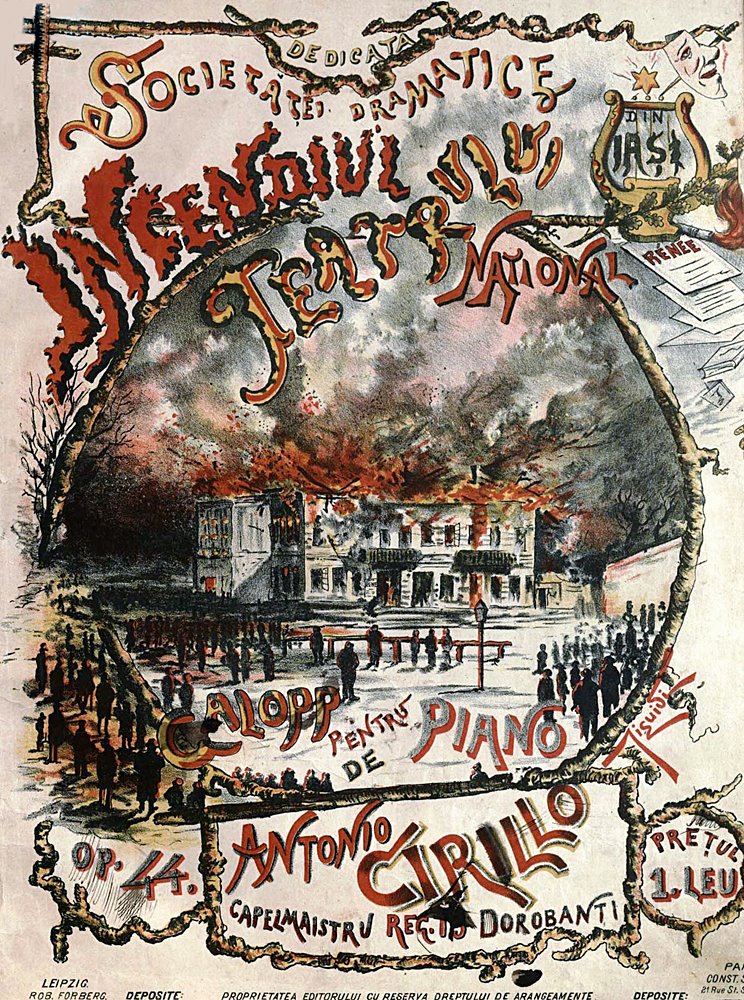 DEDICATA
SOCIETĂȚEI DRAMATICE
DIN
IAȘI
INCENDIUL
TEATRULUI
NAȚIONAL
RENÉE
GALOPP PENTRU PIANO
DE
ANTONIO CIRILLO
CAPELMAISTRU REG. 13 DOROBANTI
OP. 44.
PREȚUL
1. LEU
LEIPZIG.
ROB. FORBERG.
DEPOSITE:
PROPRIETATEA EDITORULUI CU RESERVA DREPTULUI DE ARANGEAMENTE
DEPOSITE:
CONST.
21 Rue St.